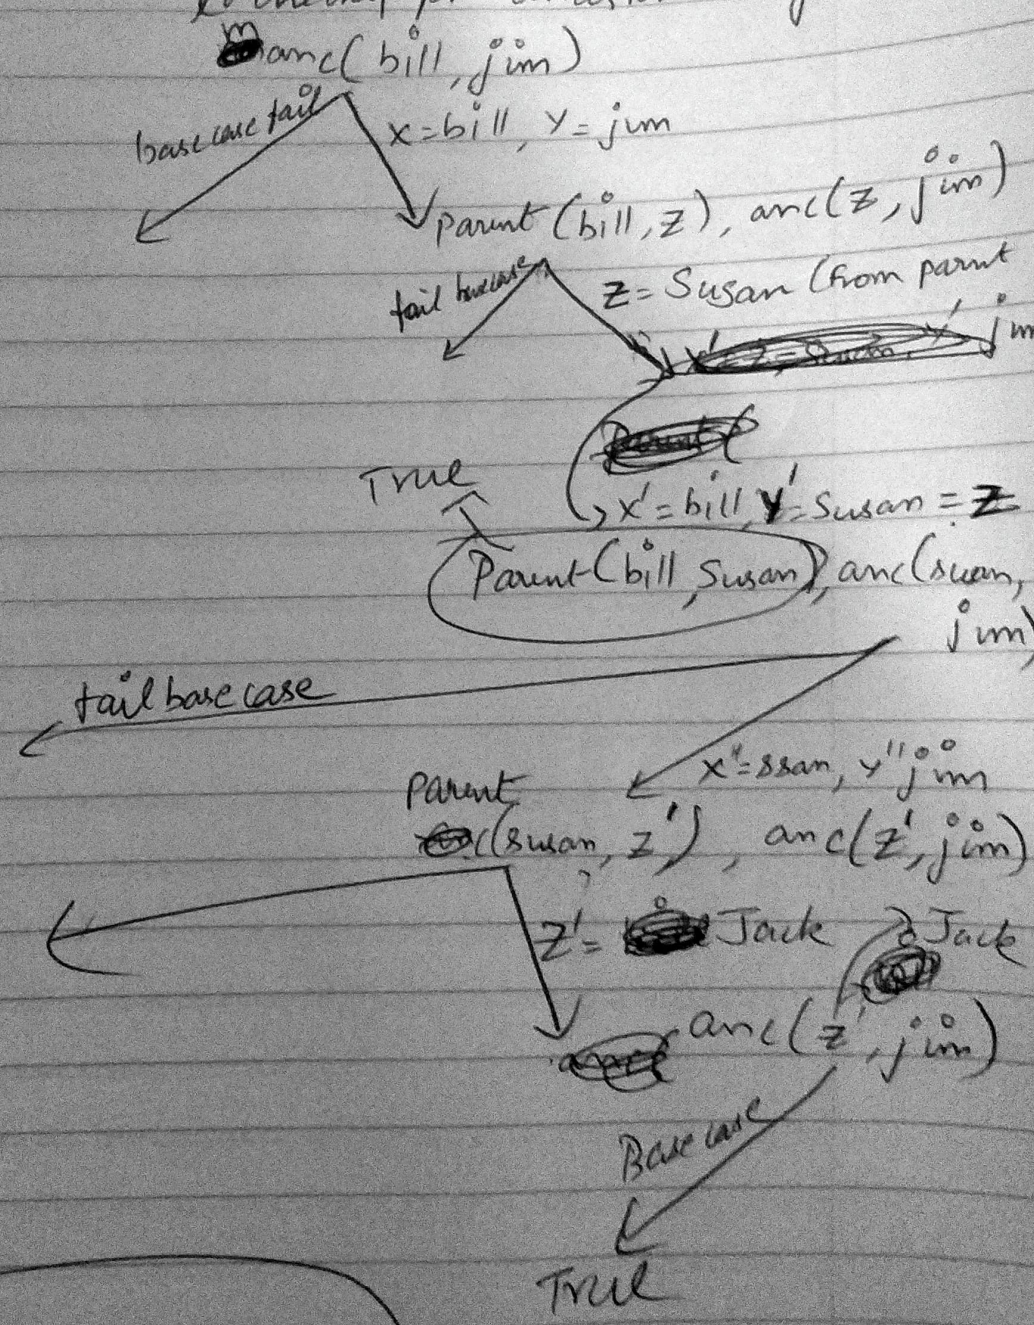 anc(bill, jim)
base case fail
x=bill, y=jim
parent(bill, z), anc(z, jim)
fail base case
z = Susan (from parent
jim
True
x'=bill, y'=Susan = z
Parent(bill, Susan), anc(susan,
jim)
fail base case
x''=ssan, y'' jim
parent
(susan, z'), anc(z', jim)
z' = Jack
Jack
anc(z', jim)
Base case
True